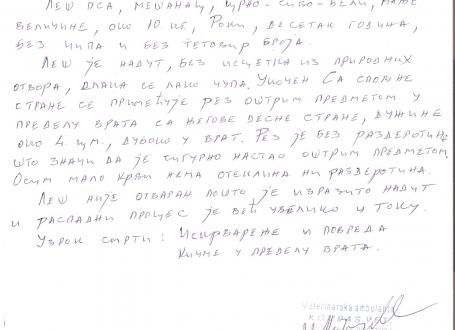 Леш пса, мешанац, црно-сиво-бели, мање
величине, око 10. кг, Роки, десетак година,
без чипа и без тетовир броја.
Леш је надут, без исцетка из природних
отвора, длака се лако чупа. Укочен. Са спољне
стране се примећује рез оштрим предметом у
пределу врата са његове десне стране, дужине
око 4. цм., дубоко у врат. Рез је без раздеротине
што значи да је сигурно настао оштрим предметом
Осим мало крви нема отеклина ни раздеротина.
Леш није отваран пошто је изразито надут
и распадни процес је већ увелико у току.
Узрок смрти: Искрварење и повреда
кичме у пределу врата.
Veterinarska ambulanta
KOMPAS VET